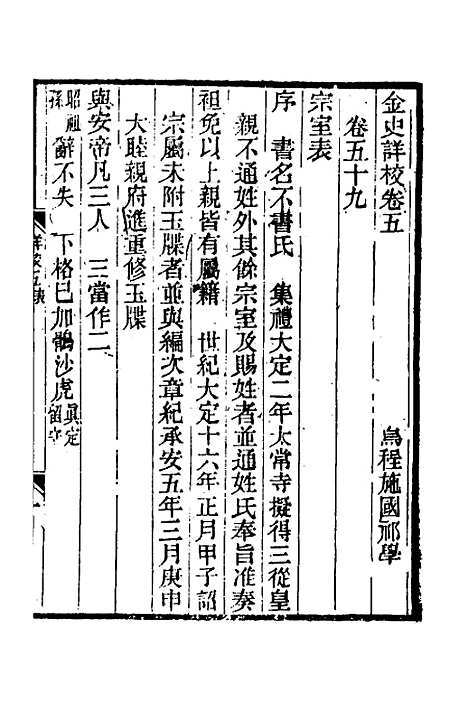 金史詳校卷五
烏程施國祁學
卷五十九
宗室表
序　書名不書氏　集禮大定二年太常寺擬得三從皇
親不通姓外其餘宗室及賜姓者並通姓氏奉旨准奏
袒免以上親皆有屬籍　世紀大定十六年正月甲子詔
宗屬未附玉牒者並與編次章紀承安五年三月庚申
大睦親府進重修玉牒
與安帝凡三人　三當作二
昭祖孫辭不失　下格已加鶻沙虎真定留守